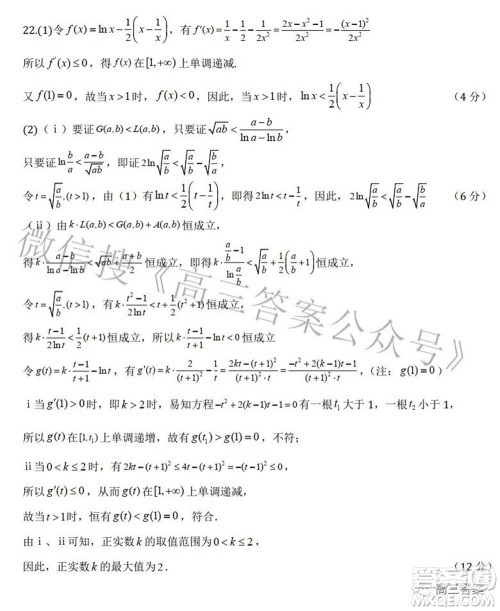 22.(1)令 f(x)=ln x−1/2(x−1/x)，有 f′(x)=1/x−1/2−1/(2x²)=(2x−x²−1)/(2x²)=−(x−1)²/(2x²)
所以 f′(x)≤0，得 f(x)在[1,+∞)上单调递减.
又 f(1)=0，故当 x>1时，f(x)<0，因此，当 x>1时，ln x<1/2(x−1/x) （4 分）
(2)（ⅰ）要证G(a,b)<L(a,b)，只要证√(ab)<(a−b)/(ln a−ln b)，
只要证ln(b/a)<(a−b)/√(ab)，即证2ln√(a/b)<√(a/b)−√(b/a)，
令t=√(a/b),(t>1)，由（1）有ln t<1/2(t−1/t)，即得2ln t<t−1/t，因此，2ln√(a/b)<√(a/b)−√(b/a) （6 分）
（ⅱ）由k·L(a,b)<G(a,b)+A(a,b)恒成立，
得k·(a−b)/(ln a−ln b)<√(ab)+(a+b)/2恒成立，即得k·(a/b−1)/ln(a/b)<√(a/b)+1/2(a/b+1)恒成立，
令t=√(a/b),(t>1)，有k·(t²−1)/(2ln t)<t+1/2(t²+1)恒成立，
得k·(t−1)/(2ln t)<(t+1)/2恒成立，所以k·(t−1)/(t+1)−ln t<0恒成立
令g(t)=k·(t−1)/(t+1)−ln t，有g′(t)=k·2/(t+1)²−1/t=(2kt−(t+1)²)/((t+1)²·t)=(−t²+2(k−1)t−1)/((t+1)²·t)，（注：g(1)=0）
ⅰ当g′(1)>0时，即k>2时，易知方程−t²+2(k−1)t−1=0有一根t₁大于 1，一根t₂小于 1，
所以g(t)在[1,t₁)上单调递增，故有g(t₁)>g(1)=0，不符；
ⅱ当0<k≤2时，有2kt−(t+1)²≤4t−(t+1)²=−(t−1)²≤0，
所以g′(t)≤0，从而g(t)在[1,+∞)上单调递减，
故当t>1时，恒有g(t)<g(1)=0，符合.
由ⅰ、ⅱ可知，正实数k的取值范围为0<k≤2，
因此，正实数k的最大值为2. （12 分）
微信搜《高三答案公众号》
高三答案